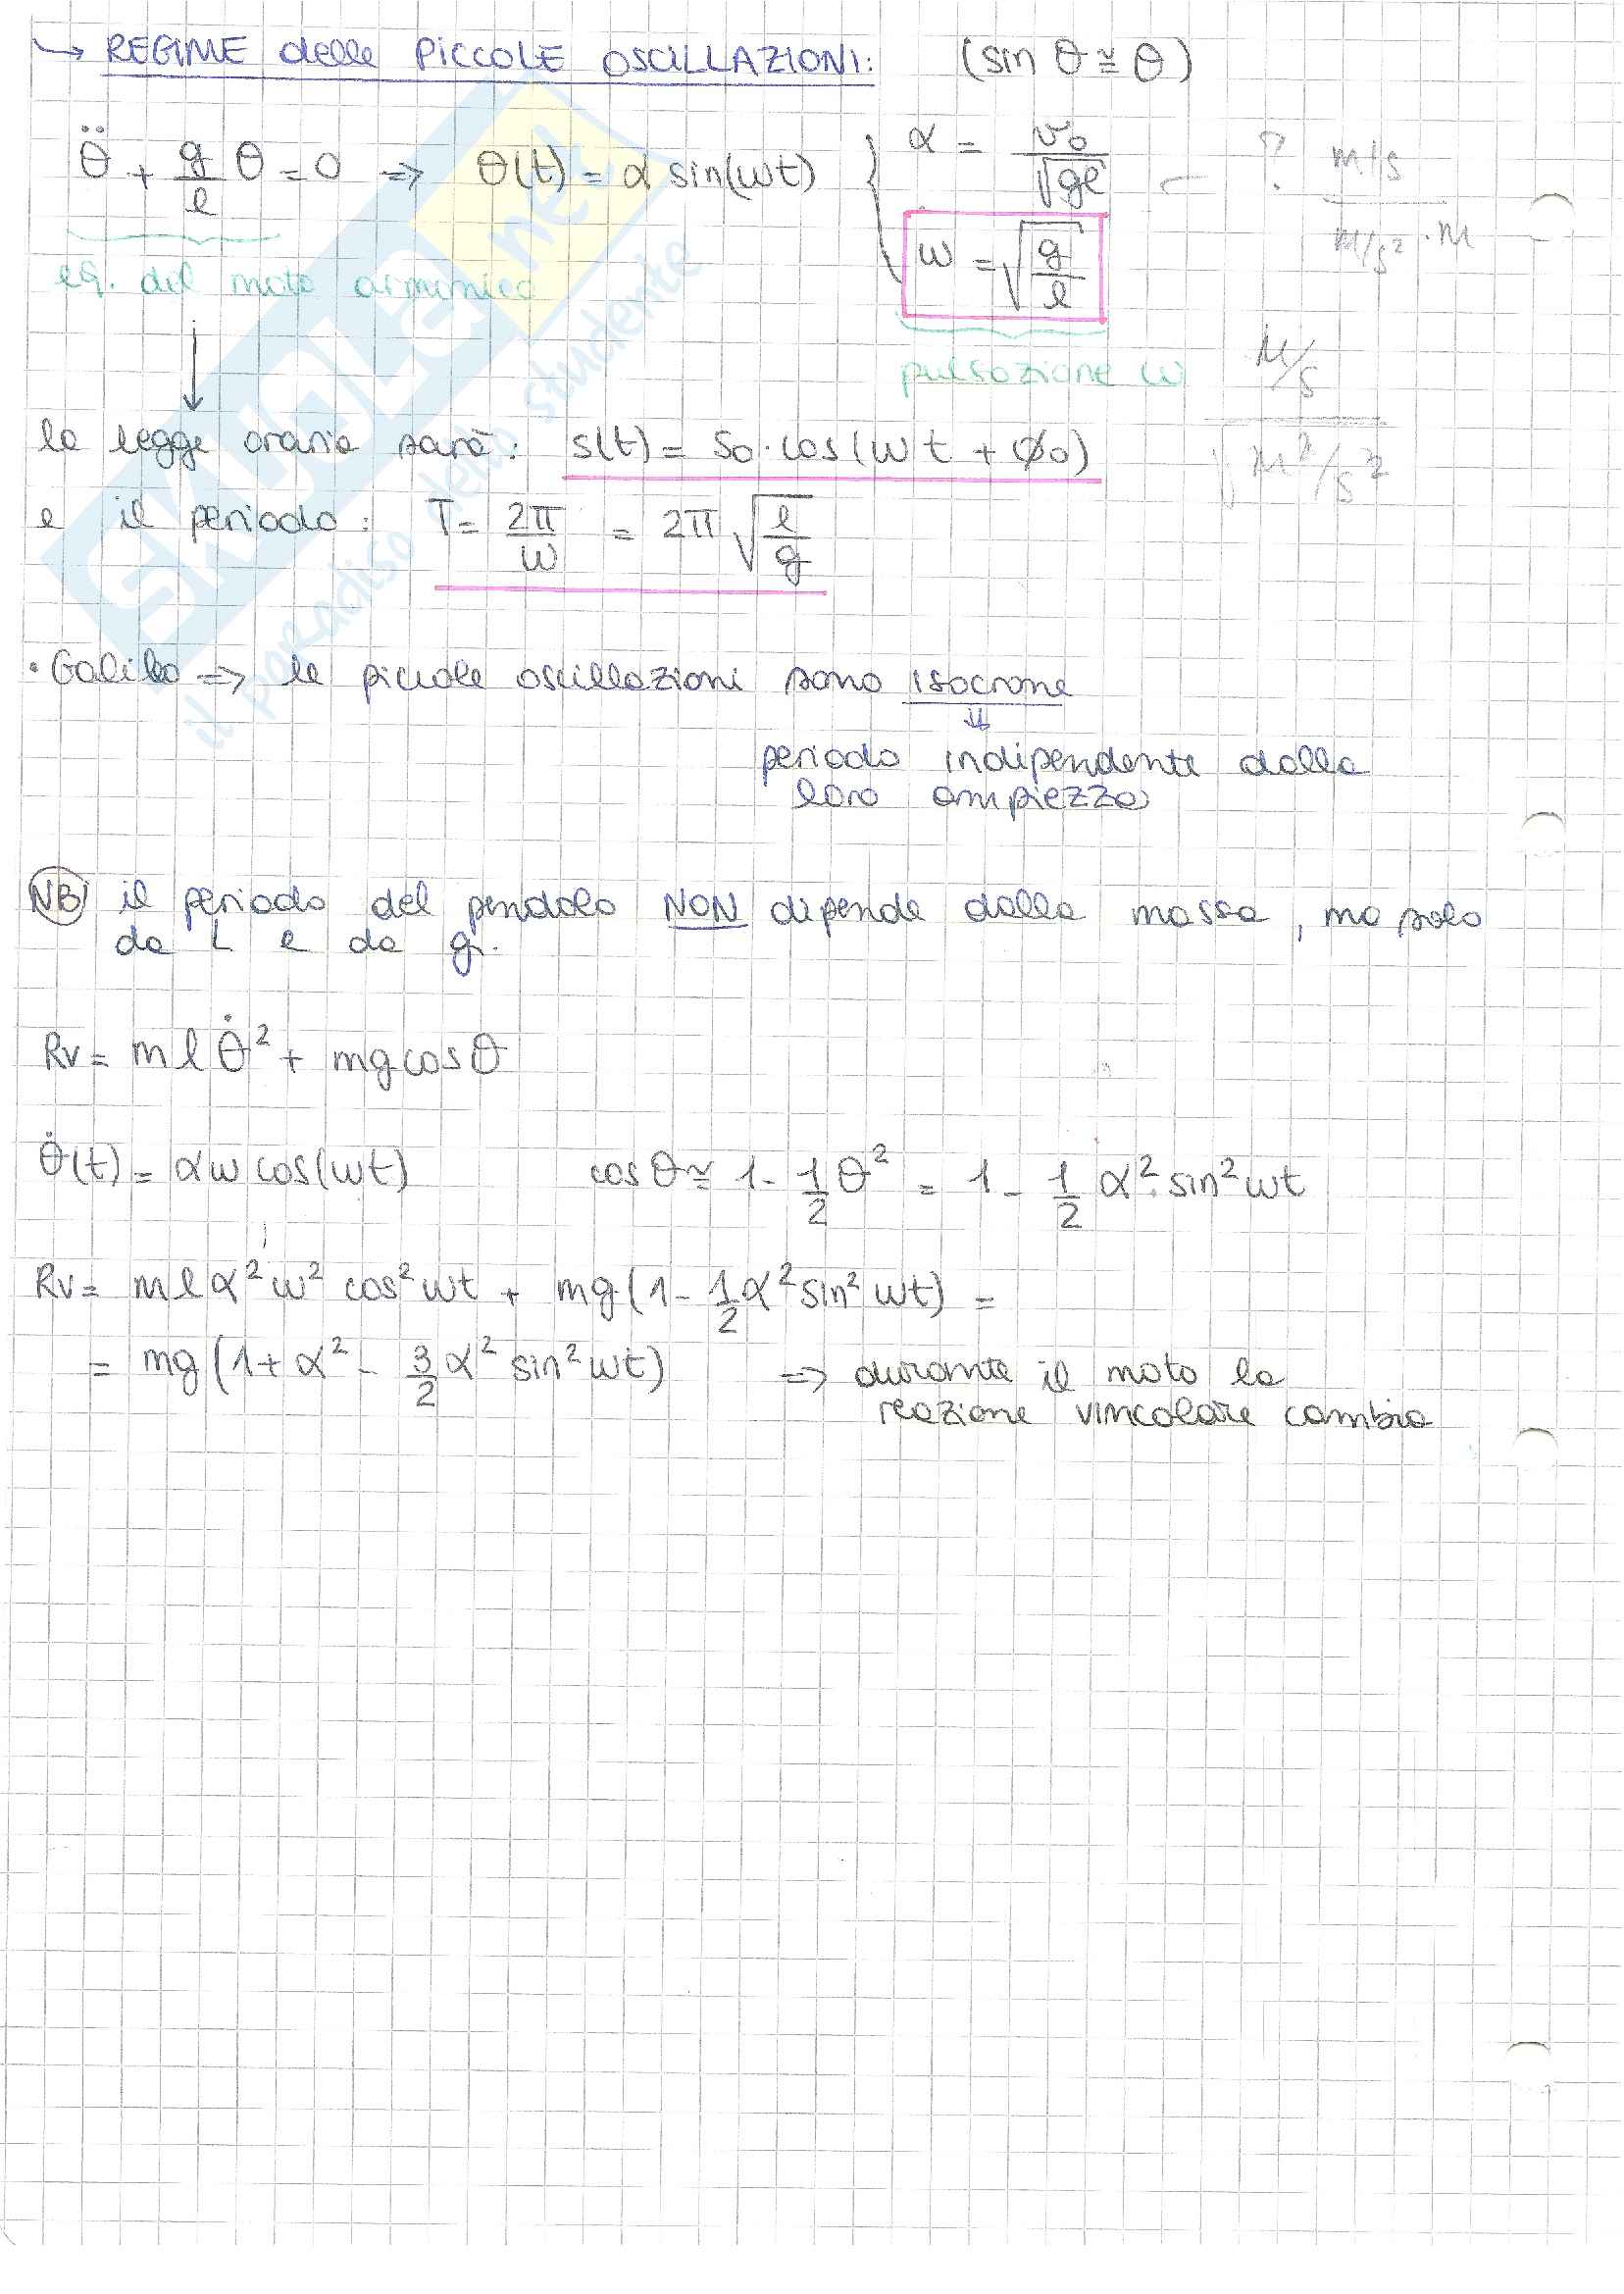 → REGIME delle PICCOLE OSCILLAZIONI: (sin θ ≅ θ)
θ̈ + g/l θ = 0 ⇒ θ(t) = α sin(ωt) { α = v₀/√gl ← ? m/s / m/s² · m
ω = √g/l
eq. del moto armonico
pulsazione ω
M/s / √M²/s²
la legge oraria sarà: s(t) = s₀ · cos(ωt + φ₀)
e il periodo: T = 2π/ω = 2π √l/g
• Galileo ⇒ le piccole oscillazioni sono isocrone
⇓
periodo indipendente dalla
loro ampiezza
NB il periodo del pendolo NON dipende dalla massa, ma solo
da L e da g.
Rv = m l θ̇² + mg cos θ
θ̇(t) = αω cos(ωt) cos θ ≅ 1 - 1/2 θ² = 1 - 1/2 α² sin² ωt
Rv = m l α² ω² cos² ωt + mg (1 - 1/2 α² sin² ωt) =
= mg (1 + α² - 3/2 α² sin² ωt) ⇒ durante il moto la
reazione vincolare cambia
SKUOLA.net
il paradiso dello studente